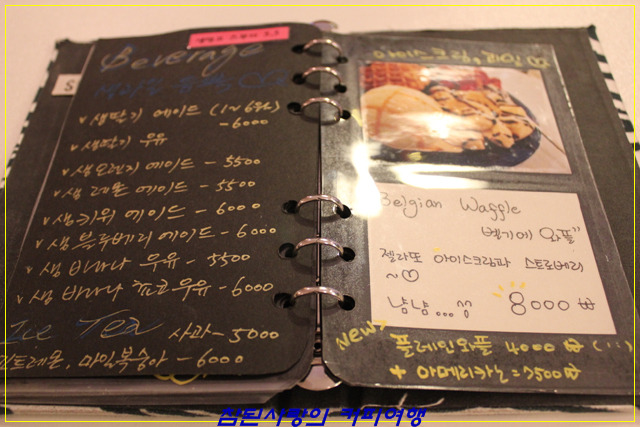 Beverage
v 생딸기 에이드 (1~6월)
-6000
v 생딸기 우유
v 생오렌지 에이드 - 5500
v 생 레몬 에이드 - 5500
v 생키위 에이드 - 6000
v 생블루베리에이드 - 6000
v 생 바나나 우유 - 5500
v 생 바나나 쵸코우유 - 6000
Ice Tea 사과 - 5000
민트레몬, 마일복숭아 - 6000
아이스크림, 과일
Belgian Waffle
벨기에 와플"
젤라또 아이스크림과 스트로베리
~♡
냠냠...^^ 8000 ₩
NEW 플레인와플 4000 ₩
+ 아메리카노=7500₩
참된사랑의 커피여행